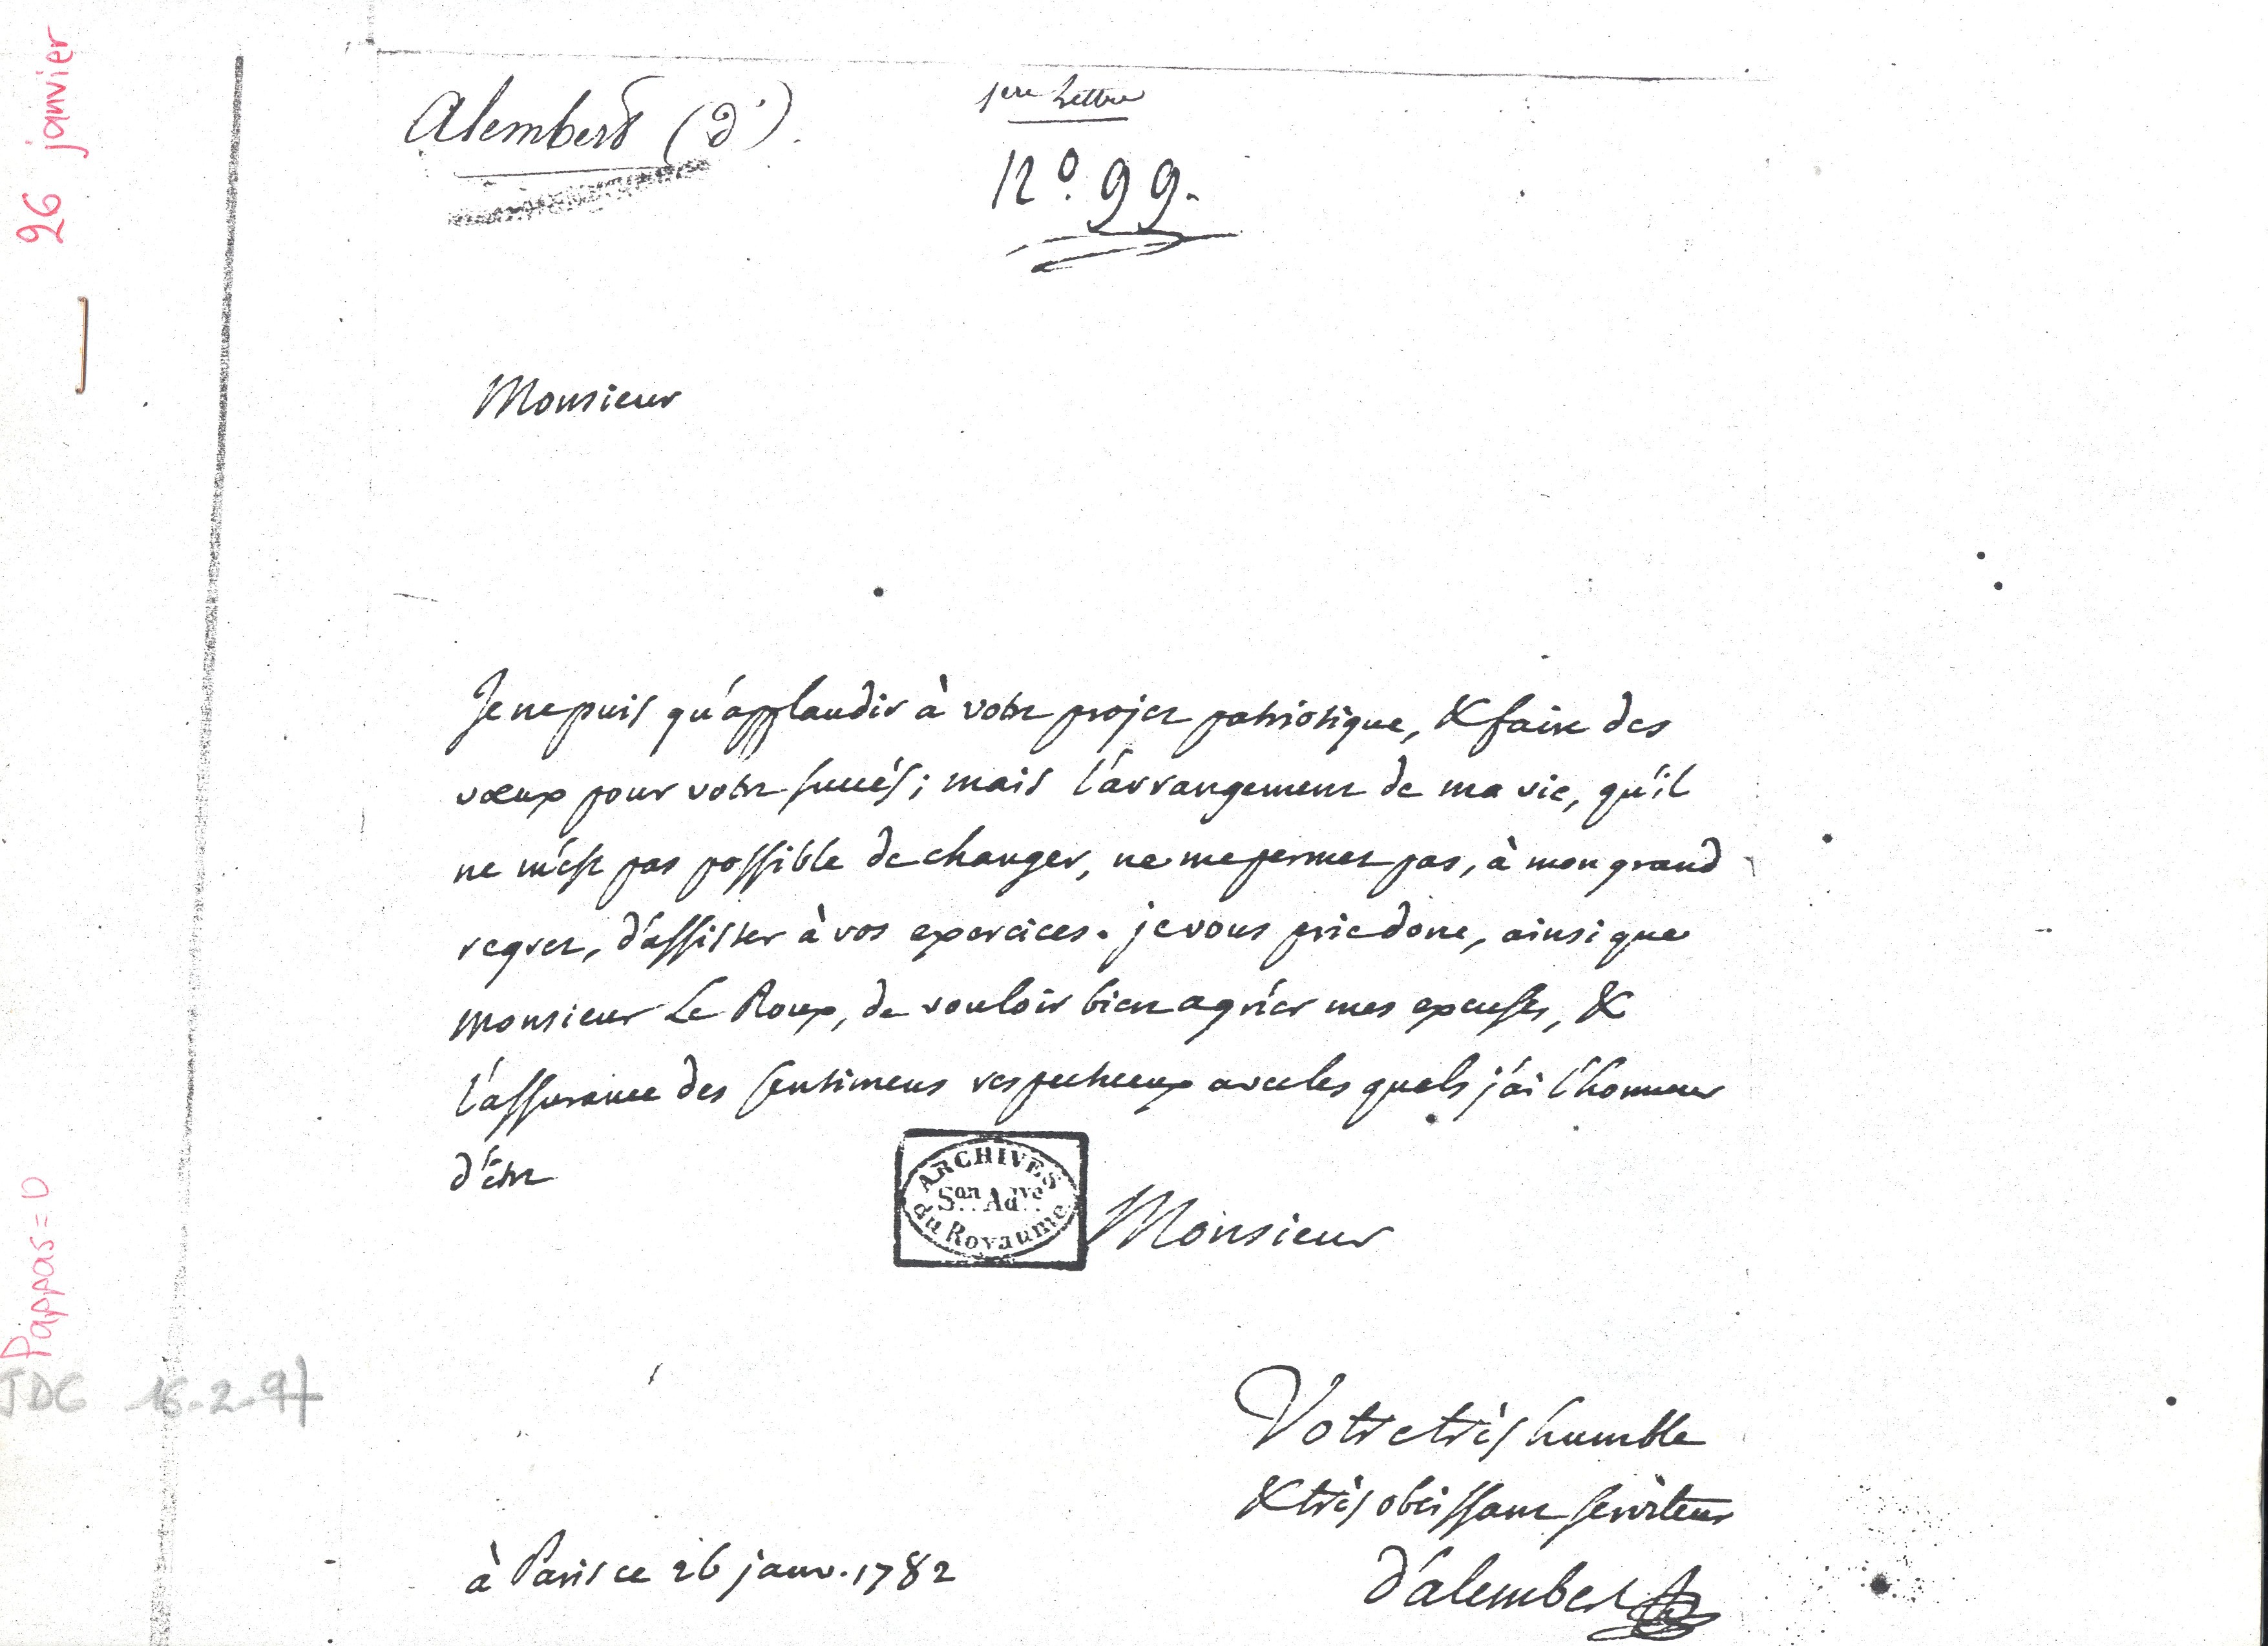 26 janvier
Alembert (d').
1ere Lettre
No. 99.
Monsieur
Je ne puis qu'applaudir à votre projet patriotique, & faire des
vœux pour votre succés; mais l'arrangement de ma vie, qu'il
ne m'est pas possible de changer, ne me permet pas, à mon grand
regret, d'assister à vos exercices. je vous prie donc, ainsi que
monsieur Le Roux, de vouloir bien agréer mes excuses, &
l'assurance des sentimens respectueux avec lesquels j'ai l'honneur
d'être
ARCHIVES
Son. Adve.
du Royaume
Monsieur
Pappas = 0
JDG 16-2-97
Votre très humble
& très obéissant serviteur
à Paris ce 26 janv. 1782
d'alembert